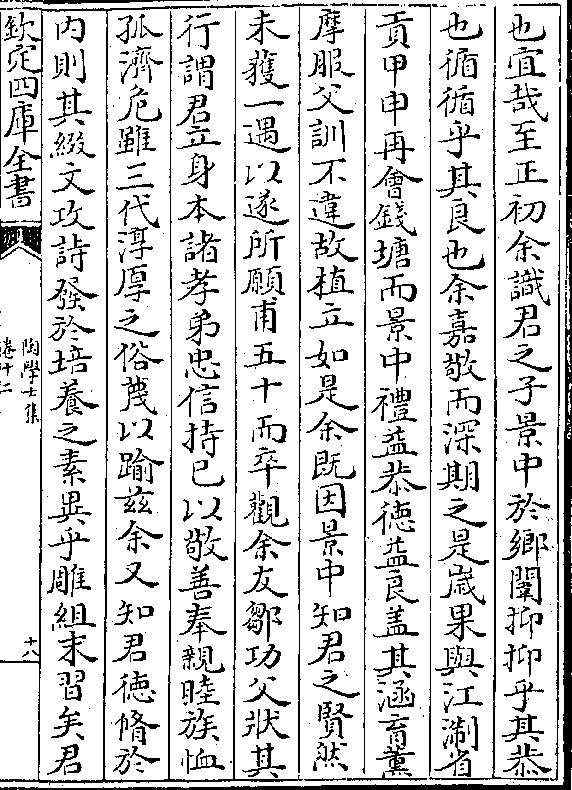 也宜哉至正初余識君之子景中於鄉闈抑抑乎其恭
也循循乎其良也余嘉敬而深期之是歲果與江淛省
貢甲申再會錢塘而景中禮益恭徳益良蓋其涵育薰
摩服父訓不違故植立如是余既因景中知君之賢然
未獲一遇以遂所願甫五十而卒觀余友鄒功父狀其
行謂君立身本諸孝弟忠信持已以敬善奉親睦族恤
孤濟危雖三代淳厚之俗蔑以踰兹余又知君徳脩於
内則其綴文攻詩發於培養之素異乎雕組末習矣君
欽定四庫全書
陶學士集
卷十二
十八